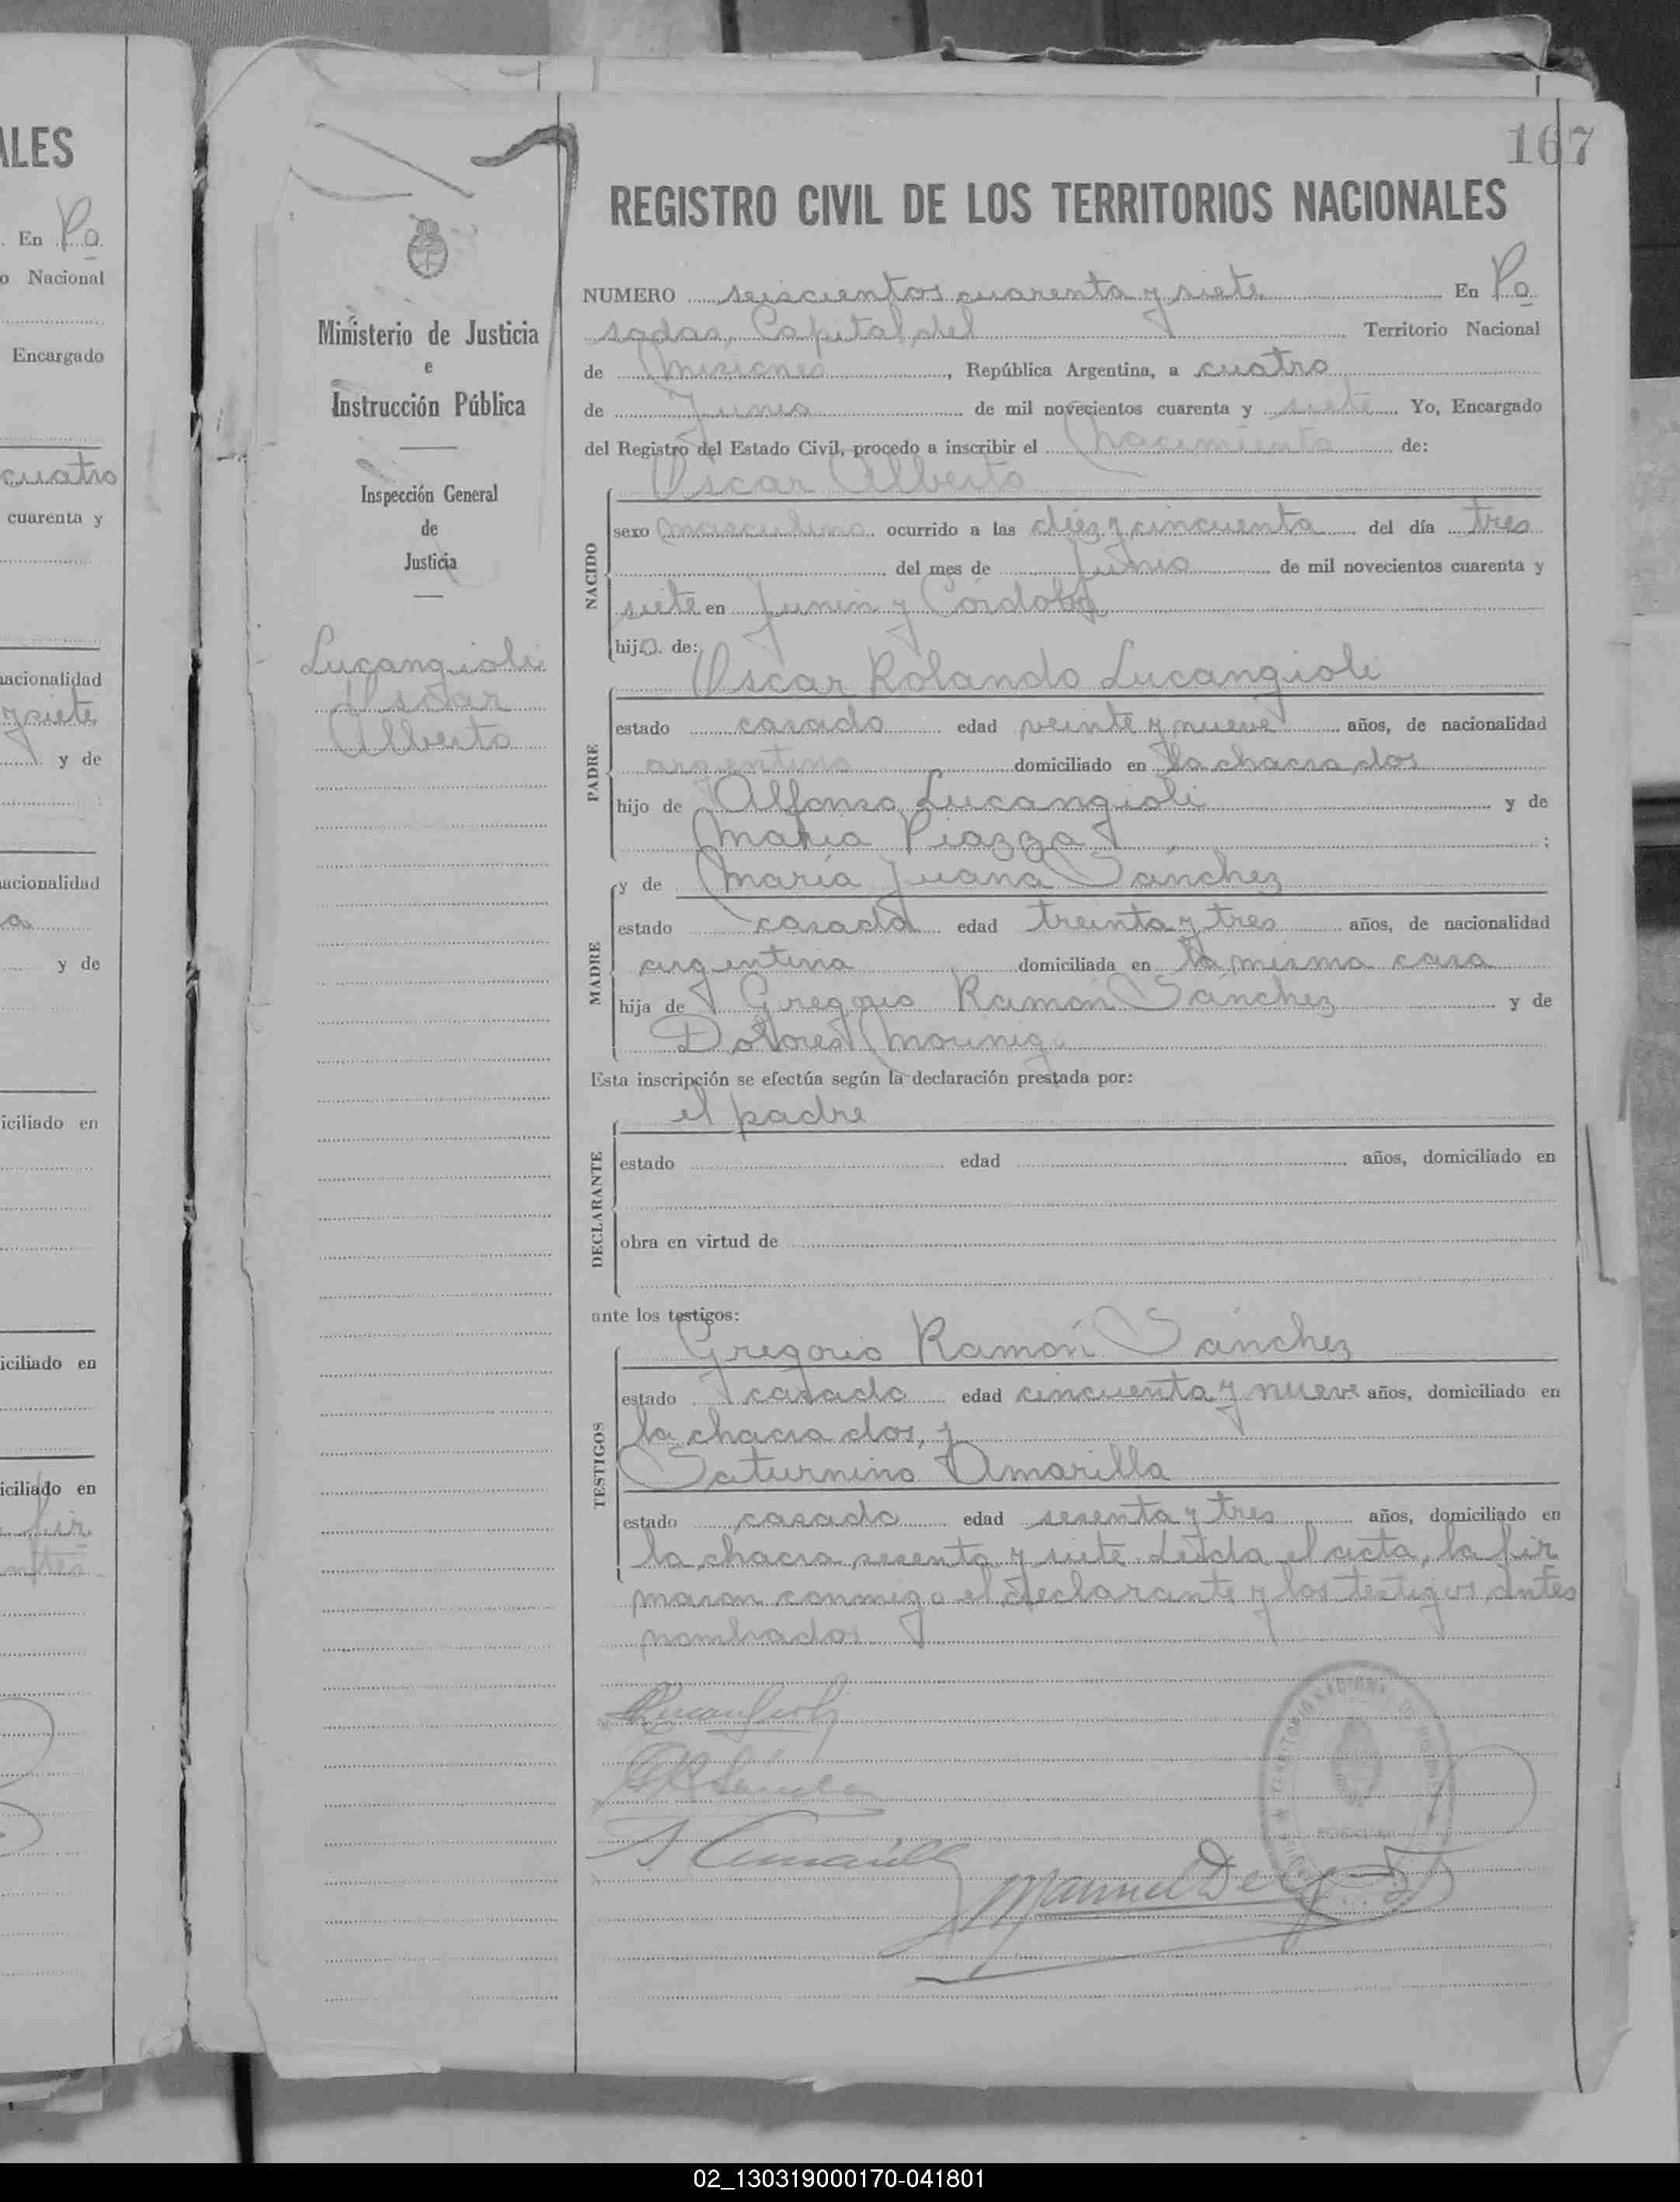 ALES
. En Po
o Nacional
Encargado
cuatro
cuarenta y
nacionalidad
y siete
y de
nacionalidad
y de
iciliado en
iciliado en
iciliado en
167
REGISTRO CIVIL DE LOS TERRITORIOS NACIONALES
Ministerio de Justicia
e
Instrucción Pública
Inspección General
de
Justicia
Lucangioli
Oscar
Alberto
NUMERO seiscientos cuarenta y siete En Po
sadas, Capital del Territorio Nacional
de Misiones, República Argentina, a cuatro
de Junio de mil novecientos cuarenta y siete Yo, Encargado
del Registro del Estado Civil, procedo a inscribir el Nacimiento de:
Oscar Alberto
NACIDO
sexo masculino ocurrido a las diez y cincuenta del día tres
del mes de Junio de mil novecientos cuarenta y
siete en Junin y Córdoba
hijo de:
Oscar Rolando Lucangioli
PADRE
estado casado edad veinte y nueve años, de nacionalidad
argentino domiciliado en la chacra dos
hijo de Alfonso Lucangioli y de
María Piazza ;
MADRE
y de María Juana Sánchez
estado casada edad treinta y tres años, de nacionalidad
argentina domiciliada en la misma casa
hija de Gregorio Ramón Sánchez y de
Dolores
Esta inscripción se efectúa según la declaración prestada por:
el padre
DECLARANTE
estado edad años, domiciliado en
obra en virtud de
ante los testigos:
Gregorio Ramón Sánchez
TESTIGOS
estado casado edad cincuenta y nueve años, domiciliado en
la chacra dos, y
Saturnino Amarilla
estado casado edad sesenta y tres años, domiciliado en
la chacra sesenta y siete. Leída el acta, la fir
maron conmigo el declarante y los testigos antes
nombrados
Lucangioli
GRSánchez
S Amarilla
Manuel
02_130319000170-041801